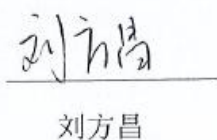 刘方昌
刘方昌